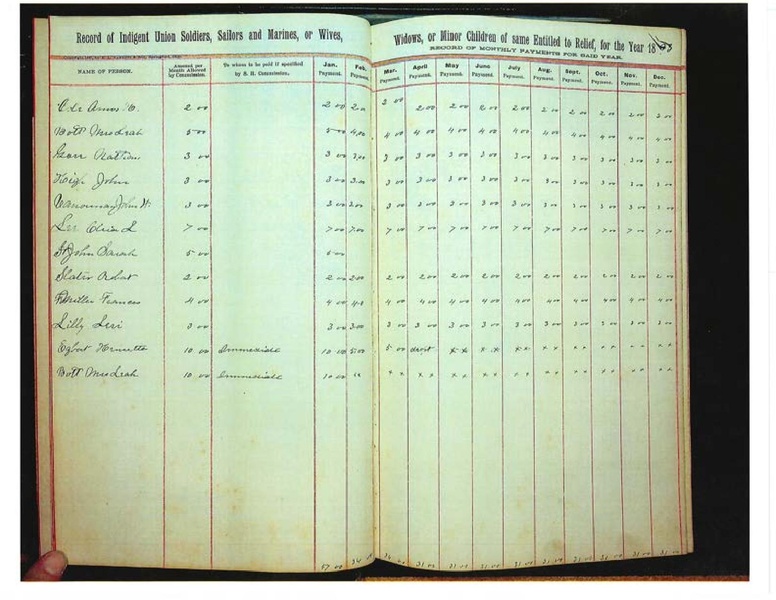 Record of Indigent Union Soldiers, Sailors and Marines, or Wives, Widows, or Minor Children of same Entitled to Relief, for the Year 18
RECORD OF MONTHLY PAYMENTS FOR SAID YEAR.
NAME OF PERSON. Amount per Month Allowed by Commission. To whom to be paid if specified by S. R. Commission. Jan. Payment. Feb. Payment. Mar. Payment. April Payment. May Payment. June Payment. July Payment. Aug. Payment. Sept. Payment. Oct. Payment. Nov. Payment. Dec. Payment.
Amos 2 00 2 00 2 00 2 00 2 00 2 00 2 00 2 00 2 00 2 00 2 00 2 00
Bott Mrs Leah 5 00 5 00 4 00 4 00 4 00 4 00 4 00 4 00 4 00 4 00 4 00 4 00 4 00
Nathan 3 00 3 00 3 00 3 00 3 00 3 00 3 00 3 00 3 00 3 00 3 00 3 00 3 00
John 3 00 3 00 3 00 3 00 3 00 3 00 3 00 3 00 3 00 3 00 3 00 3 00 3 00
John H. 3 00 3 00 3 00 3 00 3 00 3 00 3 00 3 00 3 00 3 00 3 00 3 00
Lee 7 00 7 00 7 00 7 00 7 00 7 00 7 00 7 00 7 00 7 00 7 00 7 00 7 00
St John Sarah 5 00 5 00
Slater 2 00 2 00 2 00 2 00 2 00 2 00 2 00 2 00 2 00 2 00 2 00 2 00 2 00
Miller Frances 4 00 4 00 4 00 4 00 4 00 4 00 4 00 4 00 4 00 4 00 4 00 4 00 4 00
Lilly Levi 3 00 3 00 3 00 3 00 3 00 3 00 3 00 3 00 3 00 3 00 3 00 3 00 3 00
Egbert 10 00 Immediate 10 00 5 00 5 00
Bott Mrs Leah 10 00 Immediate 10 00
31 00 31 00 31 00 31 00 31 00 31 00 31 00 31 00 31 00